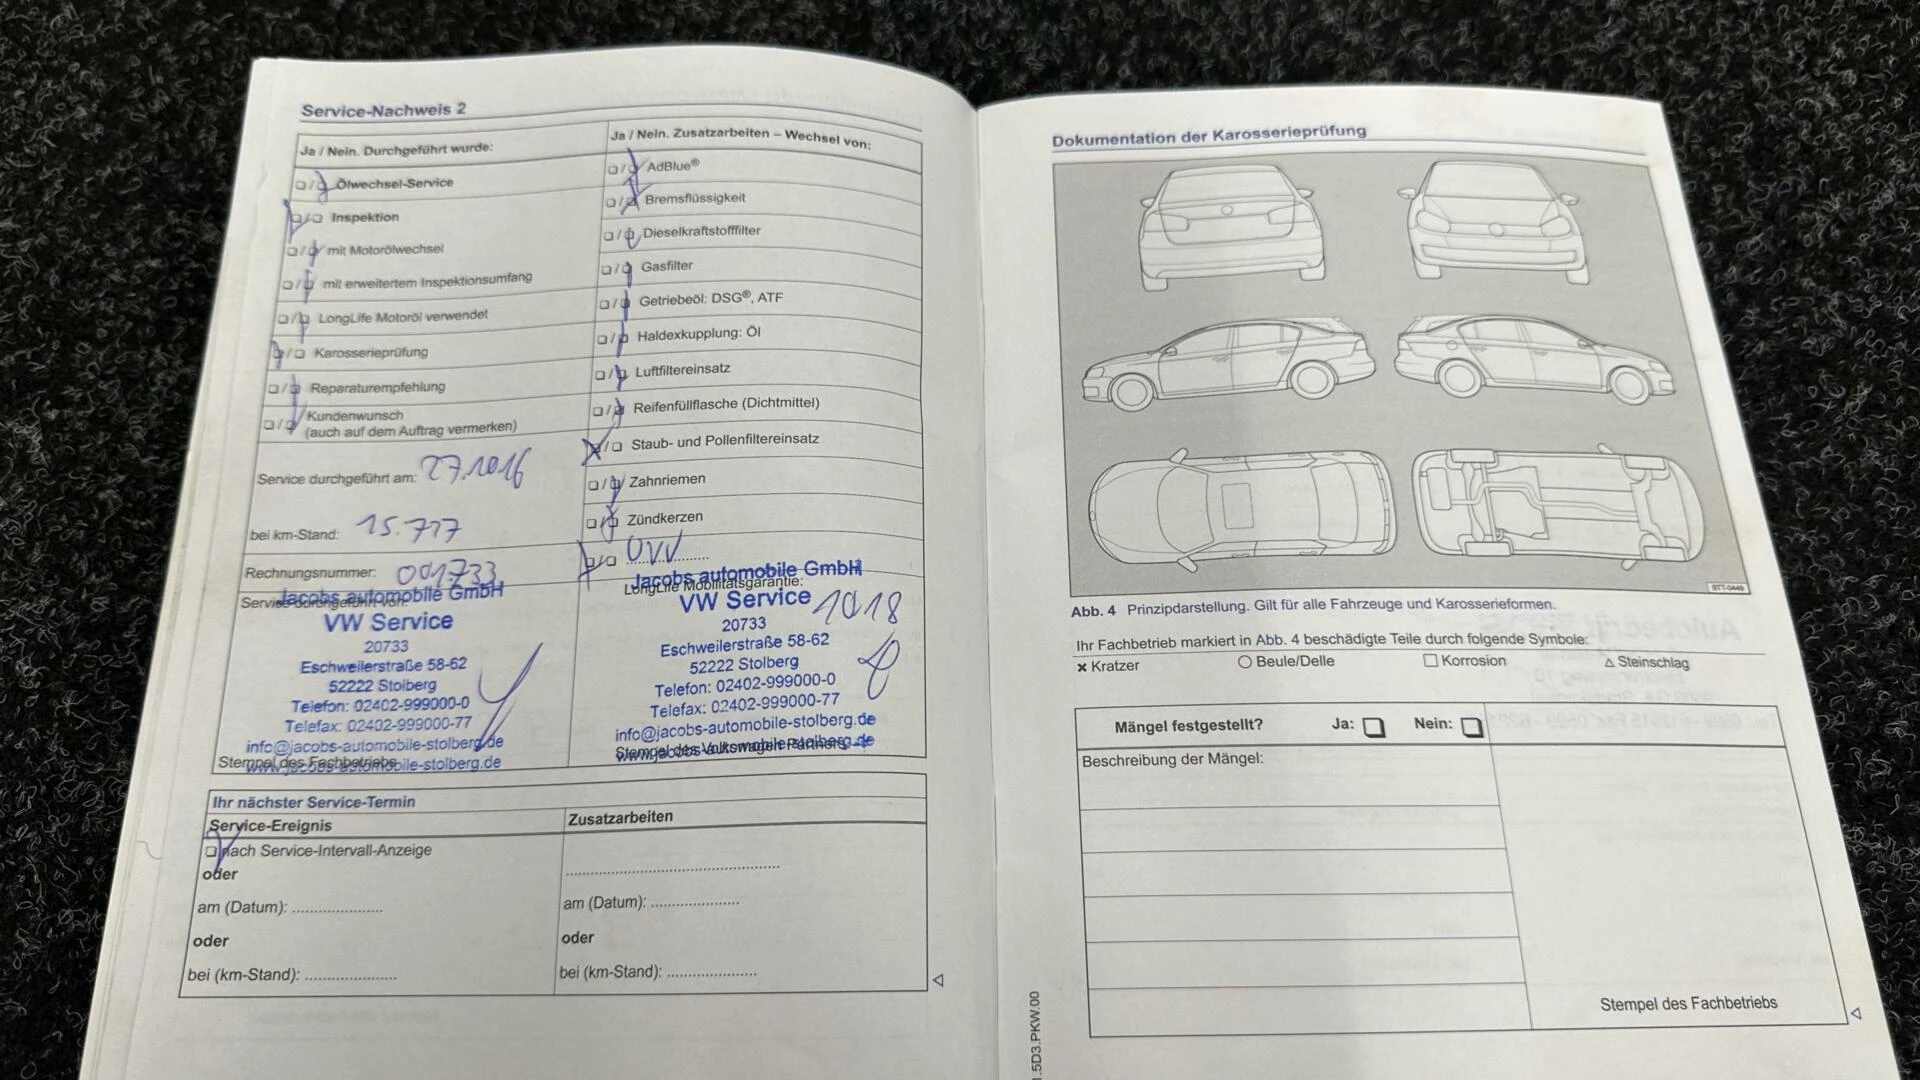 Service-Nachweis 2
Ja / Nein. Durchgeführt wurde:
Ölwechsel-Service
Inspektion
mit Motorölwechsel
mit erweitertem Inspektionsumfang
LongLife Motoröl verwendet
Karosserieprüfung
Reparaturempfehlung
Kundenwunsch
(auch auf dem Auftrag vermerken)
Service durchgeführt am: 27.10.16
bei km-Stand: 15.717
Rechnungsnummer: 001733
Service durchgeführt von:
Jacobs automobile GmbH
VW Service
20733
Eschweilerstraße 58-62
52222 Stolberg
Telefon: 02402-999000-0
Telefax: 02402-999000-77
info@jacobs-automobile-stolberg.de
www.jacobs-automobile-stolberg.de
Stempel des Fachbetriebs
Ja / Nein. Zusatzarbeiten – Wechsel von:
AdBlue®
Bremsflüssigkeit
Dieselkraftstofffilter
Gasfilter
Getriebeöl: DSG®, ATF
Haldexkupplung: Öl
Luftfiltereinsatz
Reifenfüllflasche (Dichtmittel)
Staub- und Pollenfiltereinsatz
Zahnriemen
Zündkerzen
UVV
Jacobs automobile GmbH
LongLife Mobilitätsgarantie:
VW Service
1018
20733
Eschweilerstraße 58-62
52222 Stolberg
Telefon: 02402-999000-0
Telefax: 02402-999000-77
info@jacobs-automobile-stolberg.de
www.jacobs-automobile-stolberg.de
Stempel des Volkswagen Partners
Ihr nächster Service-Termin
Service-Ereignis
nach Service-Intervall-Anzeige
oder
am (Datum): ......................
oder
bei (km-Stand): ......................
Zusatzarbeiten
am (Datum): ......................
oder
bei (km-Stand): ......................
Dokumentation der Karosserieprüfung
BTT-0449
Abb. 4 Prinzipdarstellung. Gilt für alle Fahrzeuge und Karosserieformen.
Ihr Fachbetrieb markiert in Abb. 4 beschädigte Teile durch folgende Symbole:
× Kratzer ○ Beule/Delle □ Korrosion △ Steinschlag
Mängel festgestellt? Ja: Nein:
Beschreibung der Mängel:
Stempel des Fachbetriebs
.5D3.PKW.00